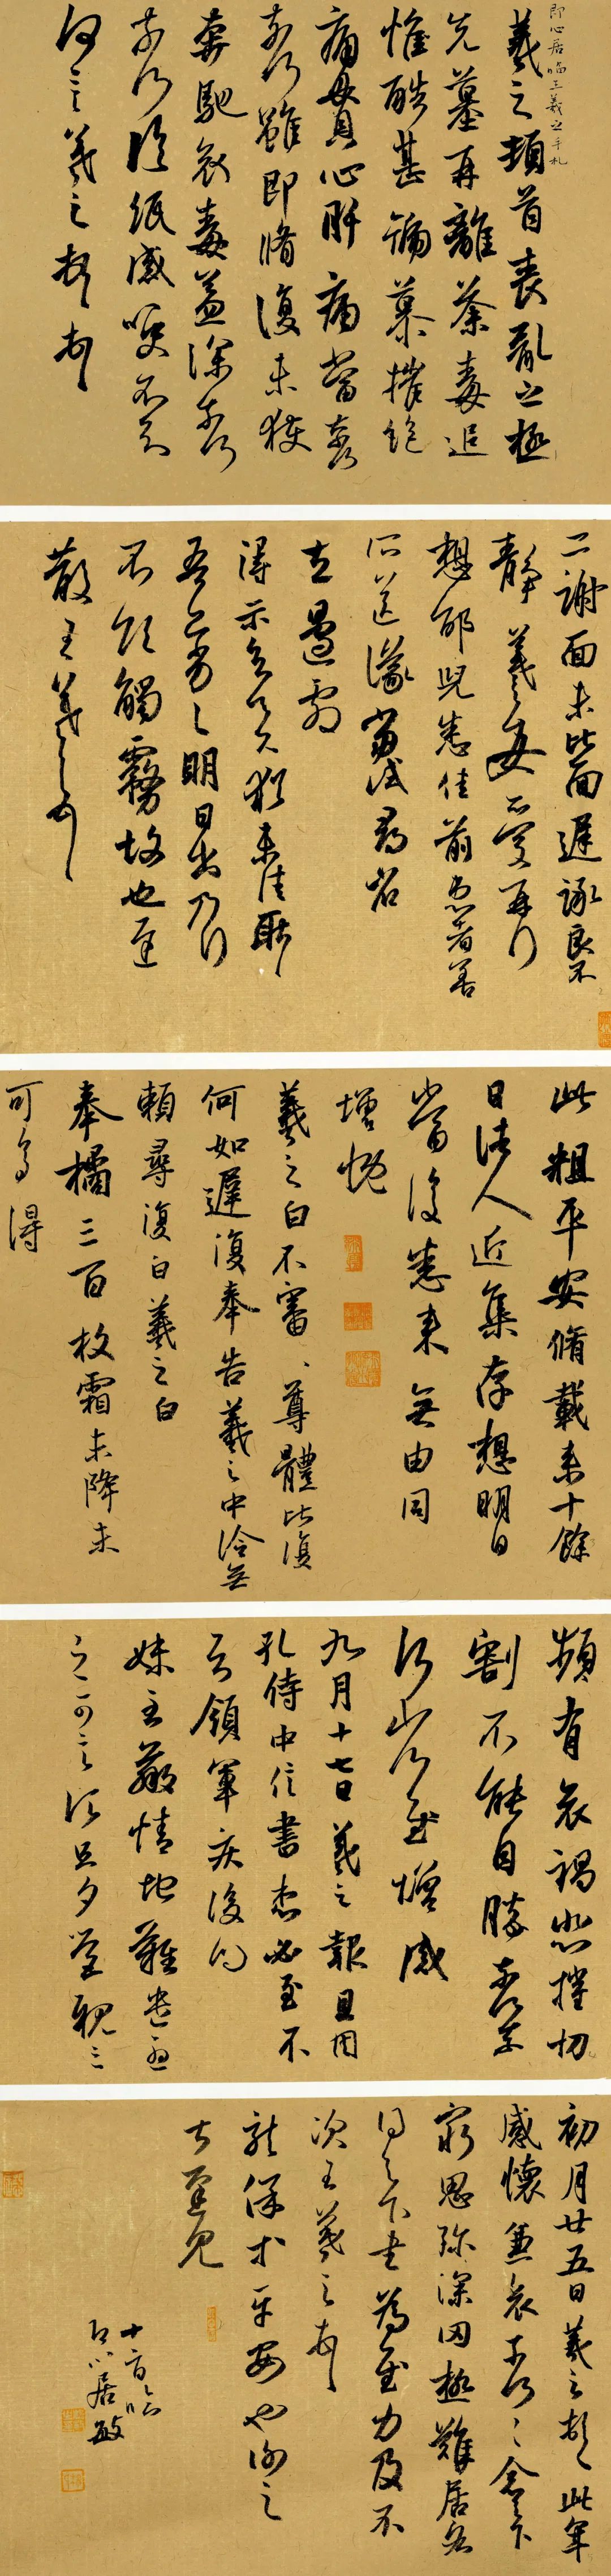 即心居临王羲之手札
羲之頓首喪亂之極
先墓再離荼毒追
惟酷甚號慕摧絕
痛貫心肝痛當奈何
奈何雖即脩復未獲
奔馳哀毒益深奈何
奈何臨紙感哽不知
何言羲之頓首頓首
二謝面未比面遲詠良不
靜羲之女愛再拜
想邰兒悉佳前患者善
所送議當試尋省
左邊劇
得示知足下猶未佳耿耿
吾亦劣劣明日出乃行
不欲觸霧故也遲
散王羲之頓首
此粗平安脩載來十餘
日諸人近集存想明日
當復悉來無由同
增慨
羲之白不審尊體比復
何如遲復奉告羲之中冷無
賴尋復白羲之白
奉橘三百枚霜未降未
可多得
頻有哀禍悲摧切
割不能自勝奈何奈
何省慰增感
九月十七日羲之報且因
孔侍中信書想必至不
知領軍疾後問
妹至羸情地難遣憂
之可言須旦夕營視之
初月廿五日羲之頓首此年
感懷兼哀奈何奈何念足下
窮思深罔極難居
得足下書為慰力及不
次王羲之頓首
龍保等平安也謝之
甚遲見